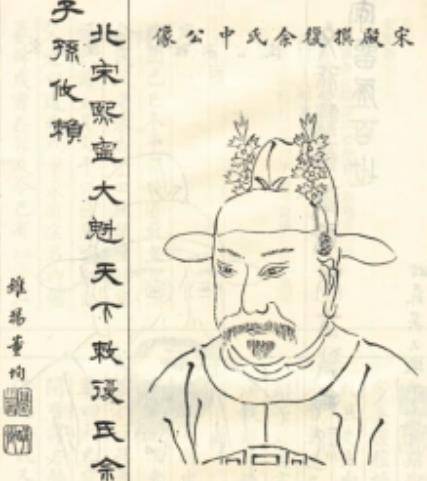 宋殿撰復余氏中公像
北宋熙寧大魁天下敕復氏余
子孫攸賴
維揚董恂